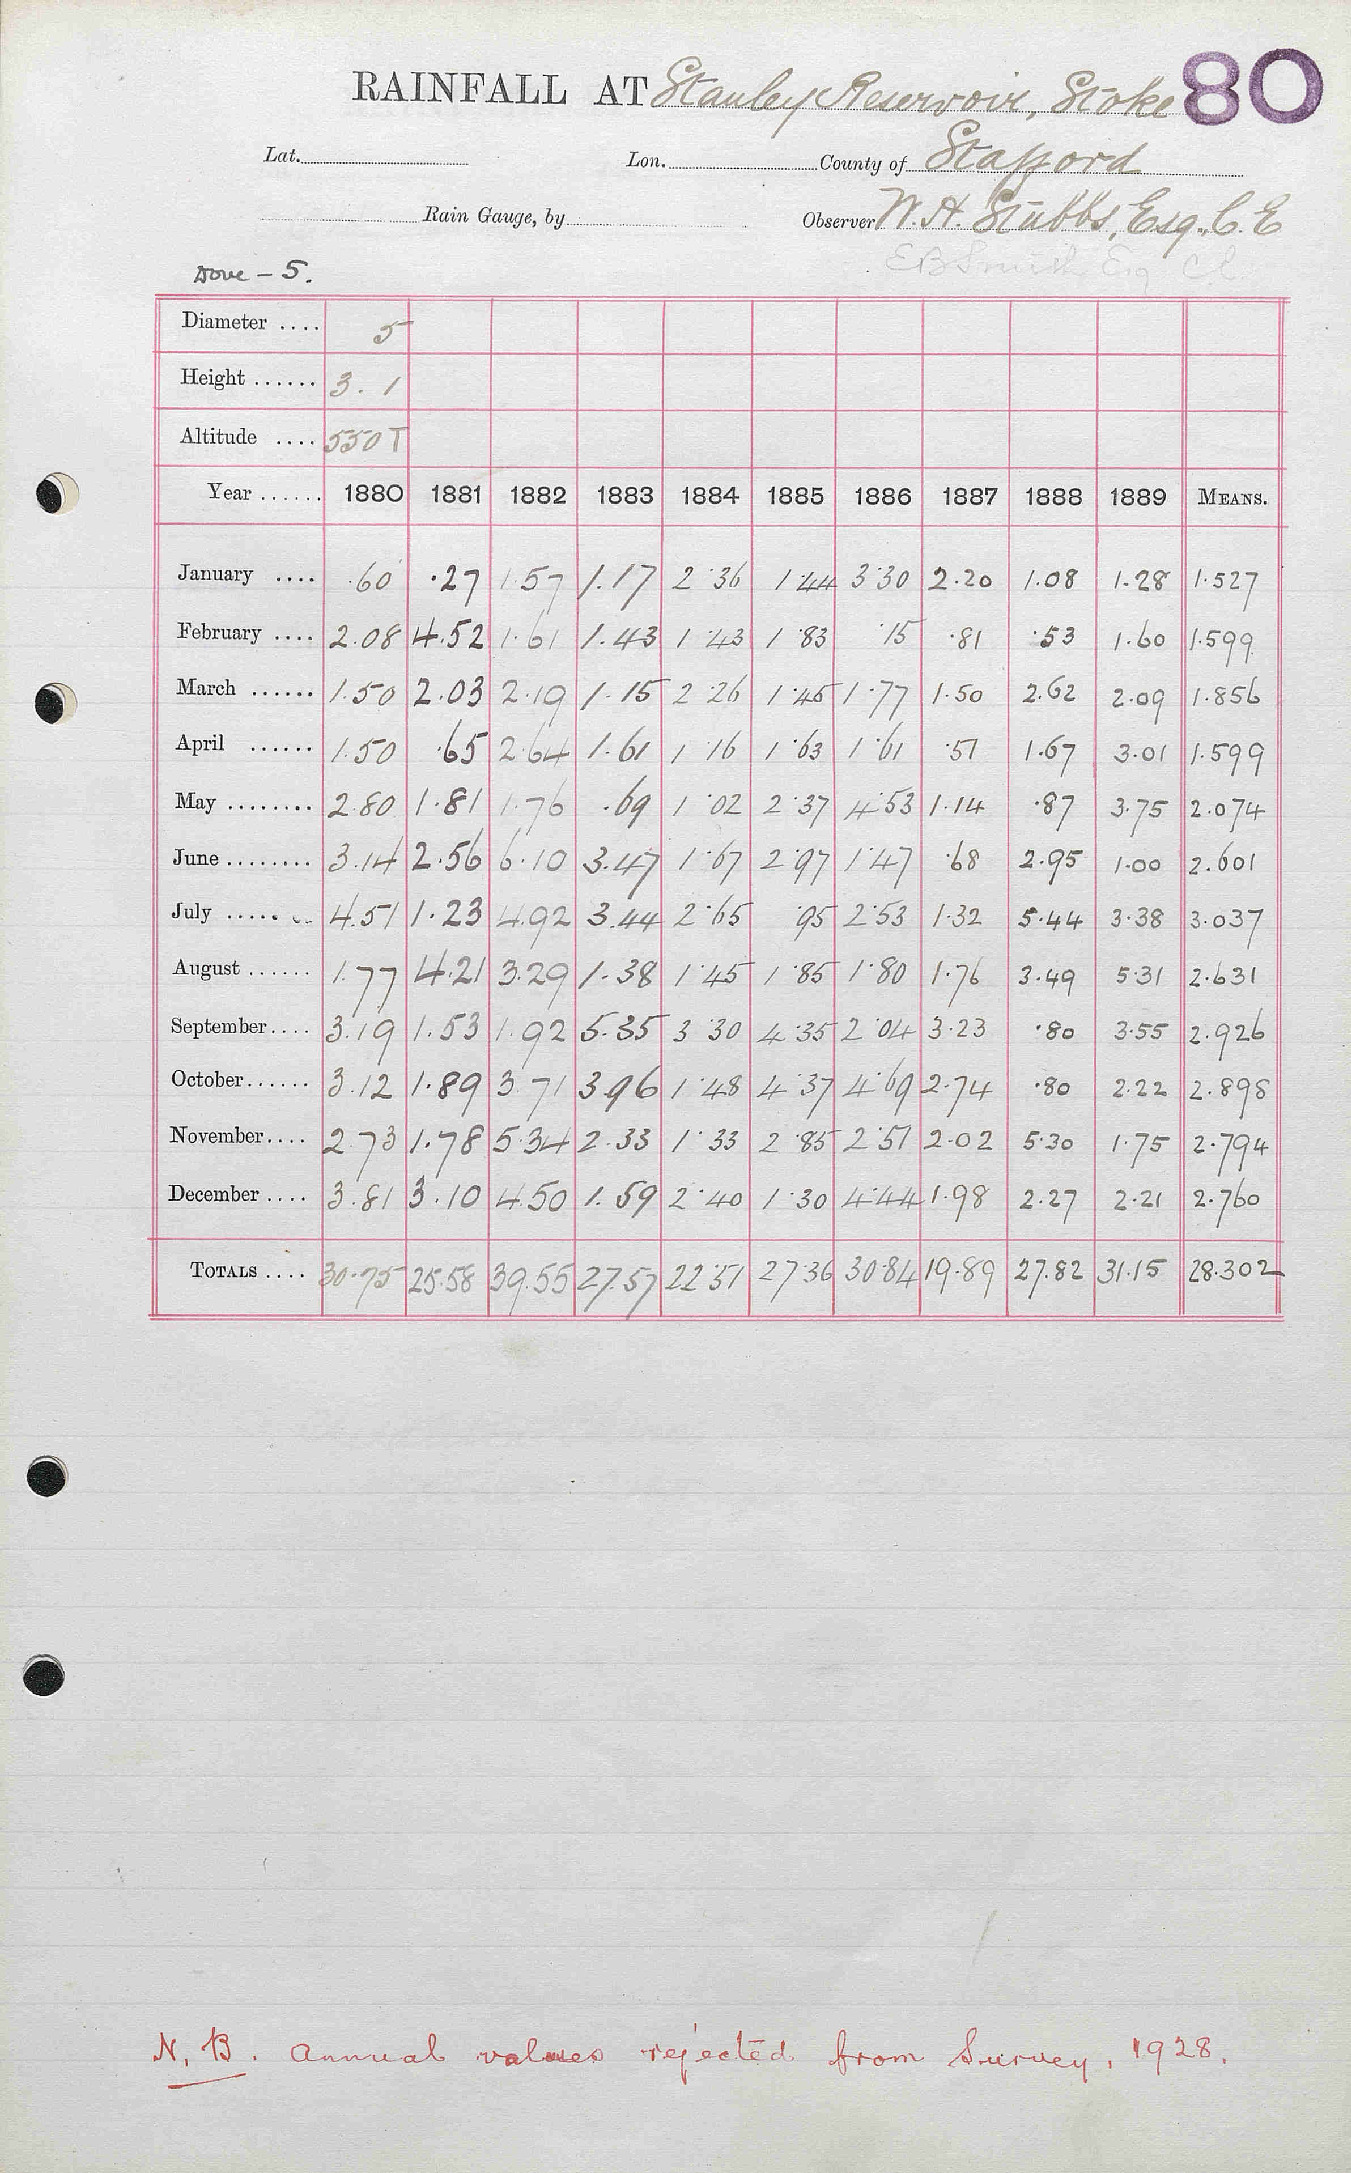 RAINFALL AT Stanley Reservoir, Stoke 80
Lat. Lon. County of Stafford
Rain Gauge, by Observer W. H. Stubbs, Esq., C.E
EB Smith Esq CE
Dove - 5.
Diameter .... 5
Height ...... 3. 1
Altitude .... 550 T
Year ...... 1880 1881 1882 1883 1884 1885 1886 1887 1888 1889 MEANS.
January .... .60 .27 1.57 1.17 2.36 1.44 3.30 2.20 1.08 1.28 1.527
February .... 2.08 4.52 1.61 1.43 1.43 1.83 .15 .81 .53 1.60 1.599
March ...... 1.50 2.03 2.19 1.15 2.26 1.45 1.77 1.50 2.62 2.09 1.856
April ...... 1.50 .65 2.64 1.61 1.16 1.63 1.61 .51 1.67 3.01 1.599
May ........ 2.80 1.81 1.76 .69 1.02 2.37 4.53 1.14 .87 3.75 2.074
June ........ 3.14 2.56 6.10 3.47 1.67 2.97 1.47 .68 2.95 1.00 2.601
July ........ 4.51 1.23 4.92 3.44 2.65 .95 2.53 1.32 5.44 3.38 3.037
August ...... 1.77 4.21 3.29 1.38 1.45 1.85 1.80 1.76 3.49 5.31 2.631
September.... 3.19 1.53 1.92 5.35 3.30 4.35 2.04 3.23 .80 3.55 2.926
October...... 3.12 1.89 3.71 3.96 1.48 4.37 4.69 2.74 .80 2.22 2.898
November.... 2.73 1.78 5.34 2.33 1.33 2.85 2.51 2.02 5.30 1.75 2.794
December .... 3.81 3.10 4.50 1.59 2.40 1.30 4.44 1.98 2.27 2.21 2.760
TOTALS .... 30.75 25.58 39.55 27.57 22.51 27.36 30.84 19.89 27.82 31.15 28.302
N. B. Annual values rejected from Survey, 1928.